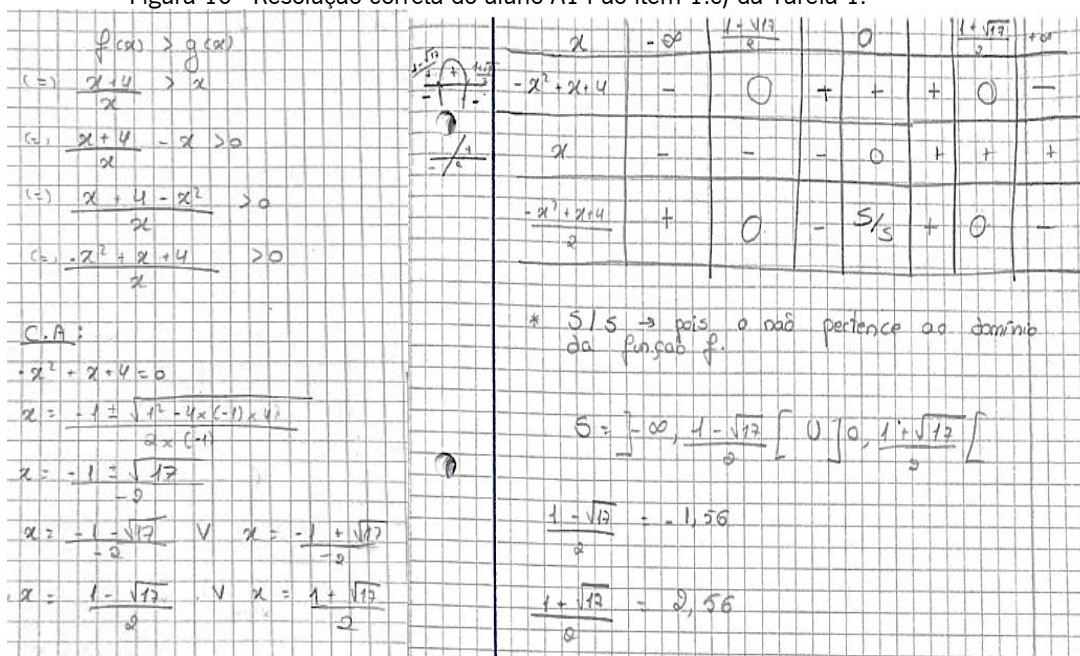 Figura 16 - Resolução correta do aluno A14 ao item 1.c) da Tarefa 1.
f(x) > g(x)
(=) x+4/x > x
(=) x+4/x - x > 0
(=) x + 4 - x²/x > 0
(=) -x² + x + 4/x > 0
C.A:
-x² + x + 4 = 0
x = -1 ± √1² - 4×(-1)×4/2×(-1)
x = -1 ± √17/-2
x = -1 - √17/-2 V x = -1 + √17/-2
x = 1 - √17/2 V x = 1 + √17/2
x -∞ 1-√17/2 0 1+√17/2 +∞
-x² + x + 4 - 0 + + + 0 -
x - - - 0 + + +
-x² + x + 4/2 + 0 - S/S + 0 -
* S/S → pois 0 não pertence ao domínio
da função f.
S = ]-∞, 1 - √17/2[ U ]0, 1 + √17/2[
1 - √17/2 = -1,56
1 + √17/2 = 2,56